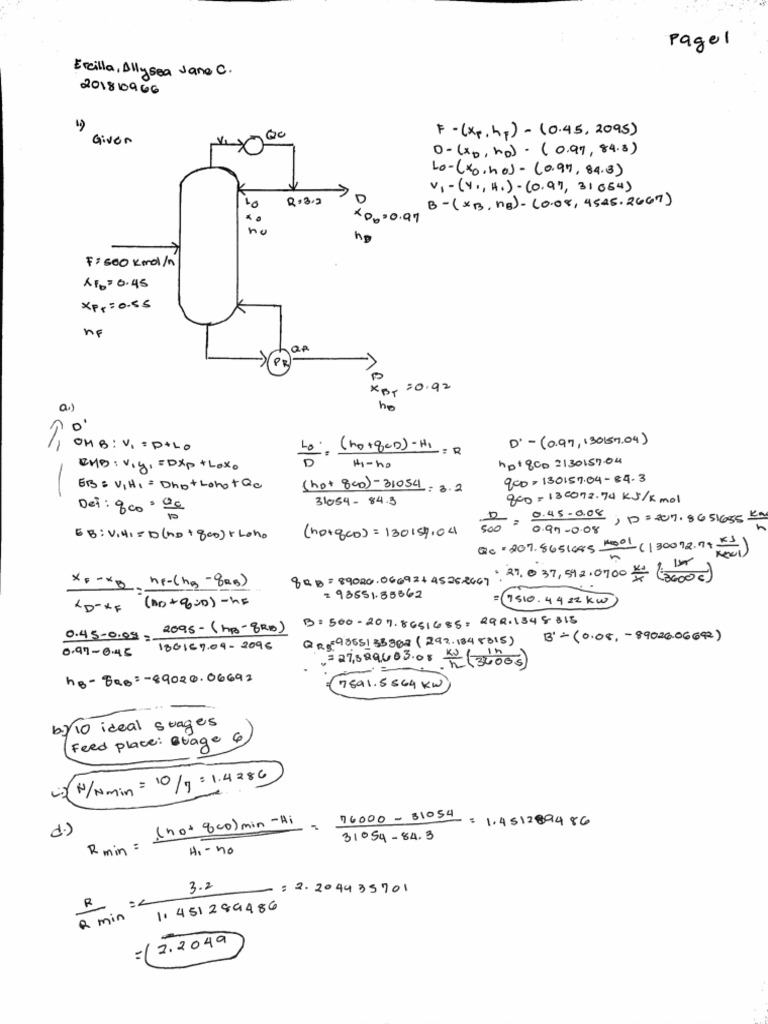 Page 1
Ercilla, Allysea Jane C.
201810966
1)
Given
V1
QC
L0
x0
h0
R=3.2
D
xDb=0.97
hD
F=500 kmol/h
xFb=0.45
xFT=0.55
hF
QR
PR
B
xBT=0.92
hB
F-(xF, hF) - (0.45, 2095)
D-(xD, hD) - (0.97, 84.3)
L0-(x0, h0) - (0.97, 84.3)
V1-(y1, H1) - (0.97, 31054)
B-(xB, hB) - (0.08, 4525.2667)
a.)
D'
OMB: V1 = D+L0
CMB: V1y1 = DxD+L0x0
EB: V1H1 = DhD+L0h0+Qc
Def: qCD = Qc/D
EB: V1H1 = D(hD+qCD)+L0h0
L0/D = ((hD+qCD)-H1)/(H1-h0) = R
((hD+qCD)-31054)/(31054-84.3) = 3.2
(hD+qCD) = 130157.04
D' - (0.97, 130157.04)
hD+qCD = 130157.04
qCD = 130157.04-84.3
qCD = 130072.74 KJ/Kmol
D/500 = (0.45-0.08)/(0.97-0.08), D = 207.8651685
Qc = 207.8651685 kmol/h (130072.74 KJ/kmol)
= 27,037,592.0700 KJ/h (1hr/3600s)
= 7510.4422 KW
(xF-xB)/(xD-xF) = (hF-(hB-qRB))/((hD+qCD)-hF)
(0.45-0.08)/(0.97-0.45) = (2095-(hB-qRB))/(130157.04-2095)
hB-qRB = -89026.06692
qRB = 89026.06692+4525.2667
= 93551.33362
B = 500-207.8651685 = 292.1348315
QRB = 93551.33362 (292.1348315)
= 27,329,603.08 KJ/h (1h/3600s)
= 7591.5564 KW
B' - (0.08, -89026.06692)
b.) 10 ideal stages
Feed place: Stage 6
c.) N/Nmin = 10/7 = 1.4286
d.)
Rmin = ((hD+qCD)min-H1)/(H1-h0) = (76000-31054)/(31054-84.3) = 1.451289486
R/Rmin = 3.2/1.451289486 = 2.204935701
= 2.2049